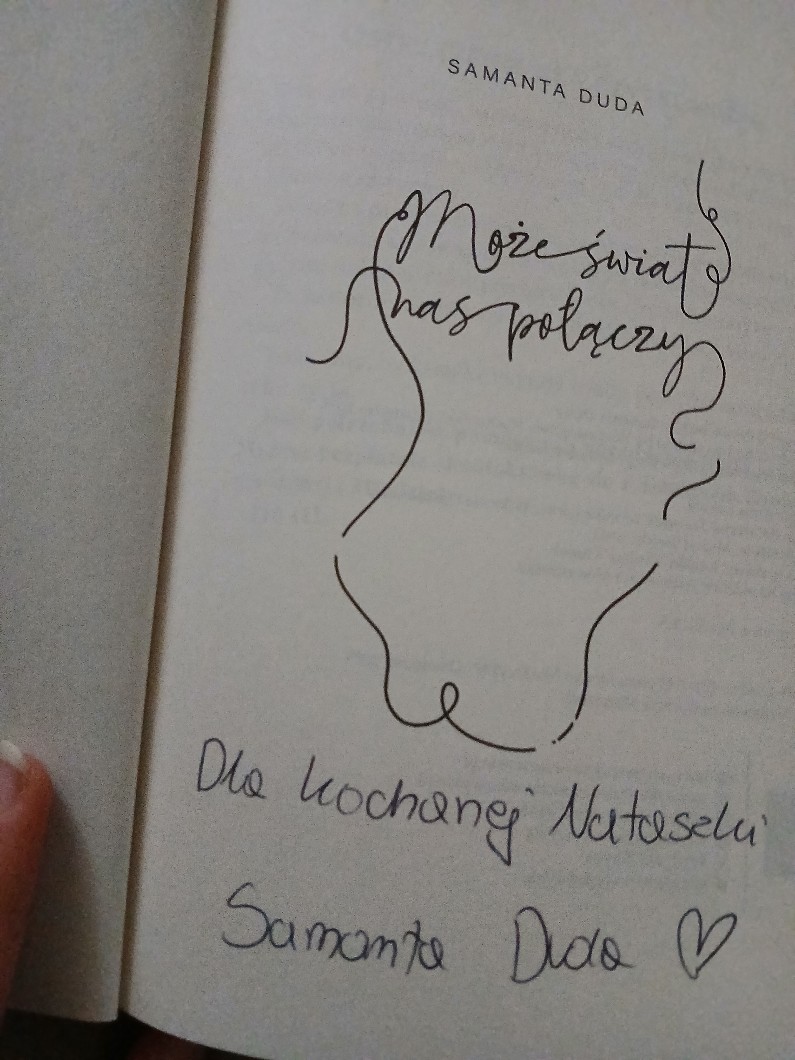 SAMANTA DUDA
Może świat
nas połączy
Dla kochanej Nataszki
Samanta Duda